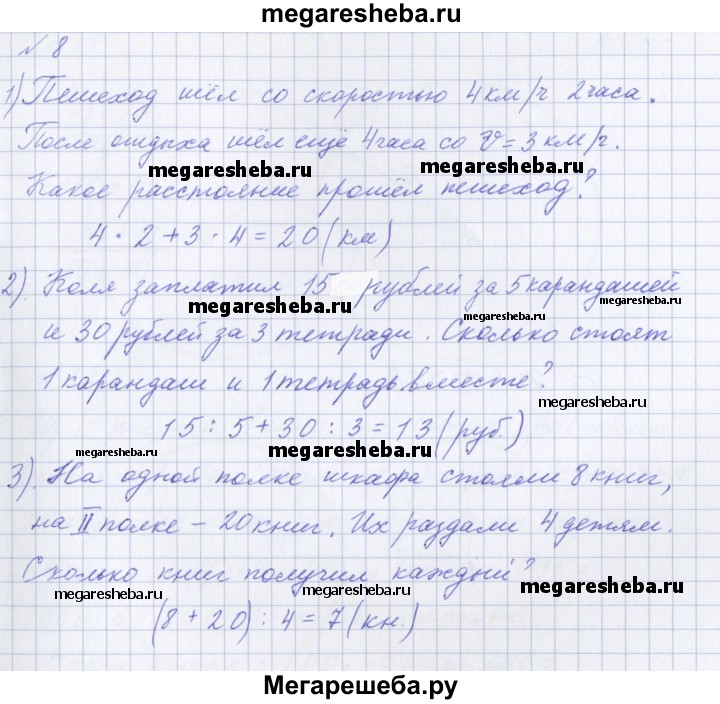 megaresheba.ru
№ 8
1) Пешеход шёл со скоростью 4 км/ч 2 часа.
После отдыха шёл ещё 4 часа со v = 3 км/г.
megaresheba.ru megaresheba.ru
Какое расстояние прошёл пешеход?
4 · 2 + 3 · 4 = 20 (км)
2). Коля заплатил 15 рублей за 5 карандашей
megaresheba.ru megaresheba.ru
и 30 рублей за 3 тетради. Сколько стоят
1 карандаш и 1 тетрадь вместе?
megaresheba.ru
15 : 5 + 30 : 3 = 13 (руб.)
megaresheba.ru megaresheba.ru
3). На одной полке шкафа стояли 8 книг,
на II полке – 20 книг. Их раздали 4 детям.
Сколько книг получил каждый?
megaresheba.ru megaresheba.ru megaresheba.ru
(8 + 20) : 4 = 7 (кн.)
Мегарешеба.ру